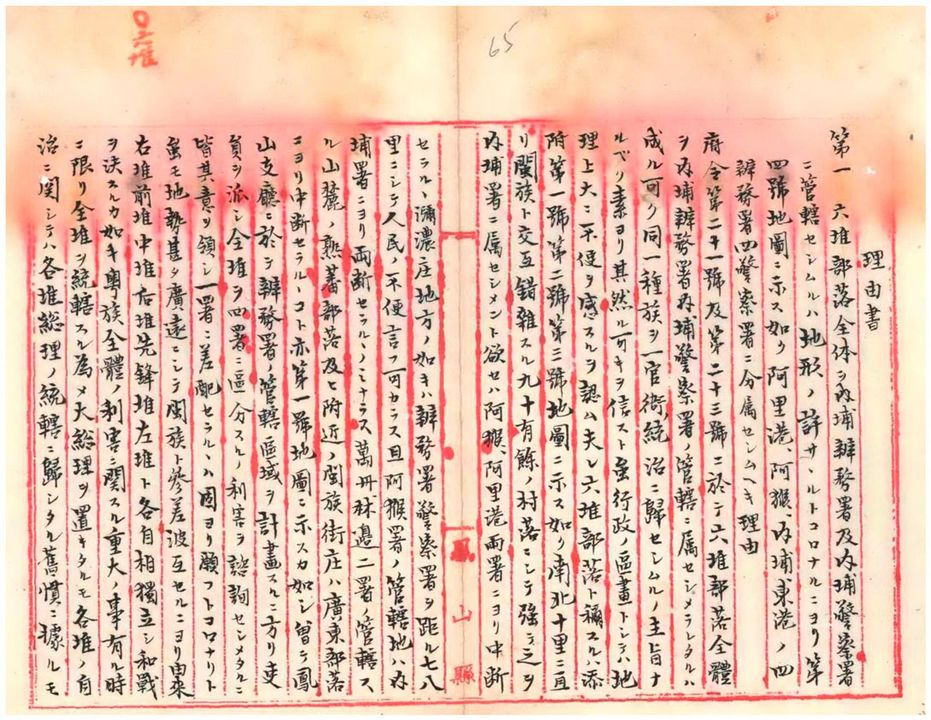 ○六堆
65
理由書
第一 六堆部落全体ヲ內埔辨務署及內埔警察署
ニ管轄セシムルハ地形ノ許サヽルトコロナルニヨリ第
四號地圖ニ示ス如ク阿里港、阿猴、內埔東港ノ四
辨務署四警察署ニ分属セシムヘキ理由
府令第二十一號及第二十三號ニ於テ六堆部落全體
ヲ內埔辨務署內埔警察署ノ管轄ニ属セシメラレタルハ
成ル可ク同一種族ヲ一官衙ノ統治ニ歸セシムルノ主旨ナ
ルベク素ヨリ其然ル可キヲ信スト虽行政ノ區畫トシテハ地
理上大ニ不便ヲ感スルヲ認ム夫レ六堆部落ト稱スルハ添
附第一號第二號第三號地圖ニ示ス如ク南北十里ニ亘
リ閩族ト交互錯雜スル九十有餘ノ村落ニシテ强テ之ヲ
內埔署ニ属セシメント欲セハ阿猴、阿里港兩署ニヨリ中断
セラルヽ瀰濃庄地方ノ如キハ辨務署警察署ヲ距ル七八
里ニシテ人民ノ不便言フ可カラス且阿猴署ノ管轄地ハ內
埔署ニヨリ両断セラルヽノミナラス萬丹林邊二署ノ管轄ス
ル山麓ノ熟蕃部落及ヒ附近ノ閩族街庄ハ廣東部落
ニヨリ中断セラルヽコト亦第一號地圖ニ示スカ如シ曾テ鳳
山支廳ニ於テ辨務署ノ管轄區域ヲ計畫スルニ方リ吏
員ヲ派シ全堆ヲ四署ニ區分スルノ利害ヲ諮詢センメタルニ
皆其意ヲ領シ一署ニ差配セラルヽハ固ヨリ願フトコロナリト
虽モ地勢甚タ廣遠ニシテ閩族ト參差波互セルニヨリ由來
右堆前堆中堆后堆先鋒堆左堆ト各自相獨立シ和戰
ヲ決スルカ如キ粤族全體ノ利害ニ関スル重大ノ事有ル時
ニ限リ全堆ヲ統轄スル為メ大総理ヲ置キタルモ各堆ノ自
治ニ関シテハ各堆総理ノ統轄ニ歸シタル舊慣ニ據ルモ
鳳山縣